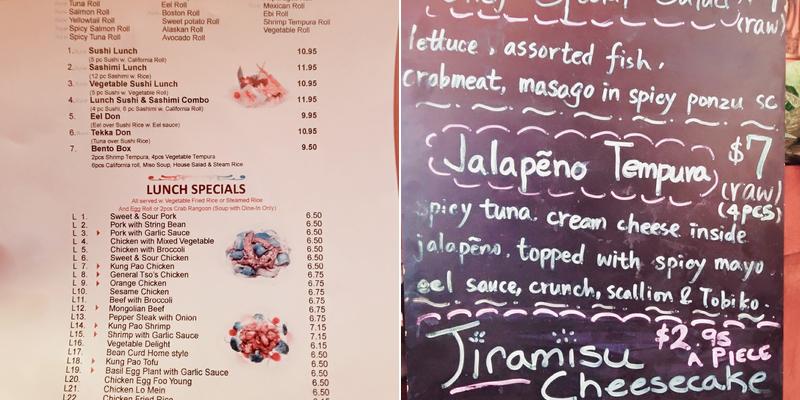 Tuna Roll
Salmon Roll
Yellowtail Roll
Spicy Salmon Roll
Spicy Tuna Roll
Eel Roll
Boston Roll
Sweet potato Roll
Alaskan Roll
Avocado Roll
Mexican Roll
Ebi Roll
Shrimp Tempura Roll
Vegetable Roll
1. Sushi Lunch 10.95
(5 pc Sushi w. California Roll)
2. Sashimi Lunch 11.95
(12 pc Sashimi w. Rice)
3. Vegetable Sushi Lunch 10.95
(5 pc Sushi w. Vegetable Roll)
4. Lunch Sushi & Sashimi Combo 11.95
(4 pc Sushi, 6 pc Sashimi w. California Roll)
5. Eel Don 9.95
(Eel over Sushi Rice w. Eel sauce)
6. Tekka Don 10.95
(Tuna over Sushi Rice)
7. Bento Box 9.50
2pcs Shrimp Tempura, 4pcs Vegetable Tempura
6pcs California roll, Miso Soup, House Salad & Steam Rice
LUNCH SPECIALS
All served w. Vegetable Fried Rice or Steamed Rice
And Egg Roll or 2pcs Crab Rangoon (Soup with Dine-In Only)
L 1. Sweet & Sour Pork 6.50
L 2. Pork with String Bean 6.50
L 3. Pork with Garlic Sauce 6.50
L 4. Chicken with Mixed Vegetable 6.50
L 5. Chicken with Broccoli 6.50
L 6. Sweet & Sour Chicken 6.50
L 7. Kung Pao Chicken 6.50
L 8. General Tso's Chicken 6.75
L 9. Orange Chicken 6.75
L10. Sesame Chicken 6.75
L11. Beef with Broccoli 6.75
L12. Mongolian Beef 6.75
L13. Pepper Steak with Onion 6.75
L14. Kung Pao Shrimp 7.15
L15. Shrimp with Garlic Sauce 7.15
L16. Vegetable Delight 6.15
L17. Bean Curd Home style 6.50
L18. Kung Pao Tofu 6.50
L19. Basil Egg Plant with Garlic Sauce 6.50
L20. Chicken Egg Foo Young 6.50
L21. Chicken Lo Mein 6.50
L22. Chicken Fried Rice
Special Salad
(raw)
lettuce, assorted fish,
crabmeat, masago in spicy ponzu sc
Jalapeño Tempura $7
(raw)
(4PCS)
spicy tuna. cream cheese inside
jalapeño. topped with spicy mayo
eel sauce, crunch, scallion & Tobiko.
Tiramisu $2.95
A PIECE
Cheesecake